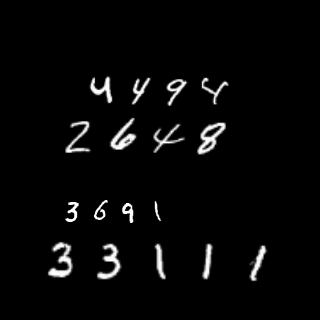 4494
2648
3691
33111